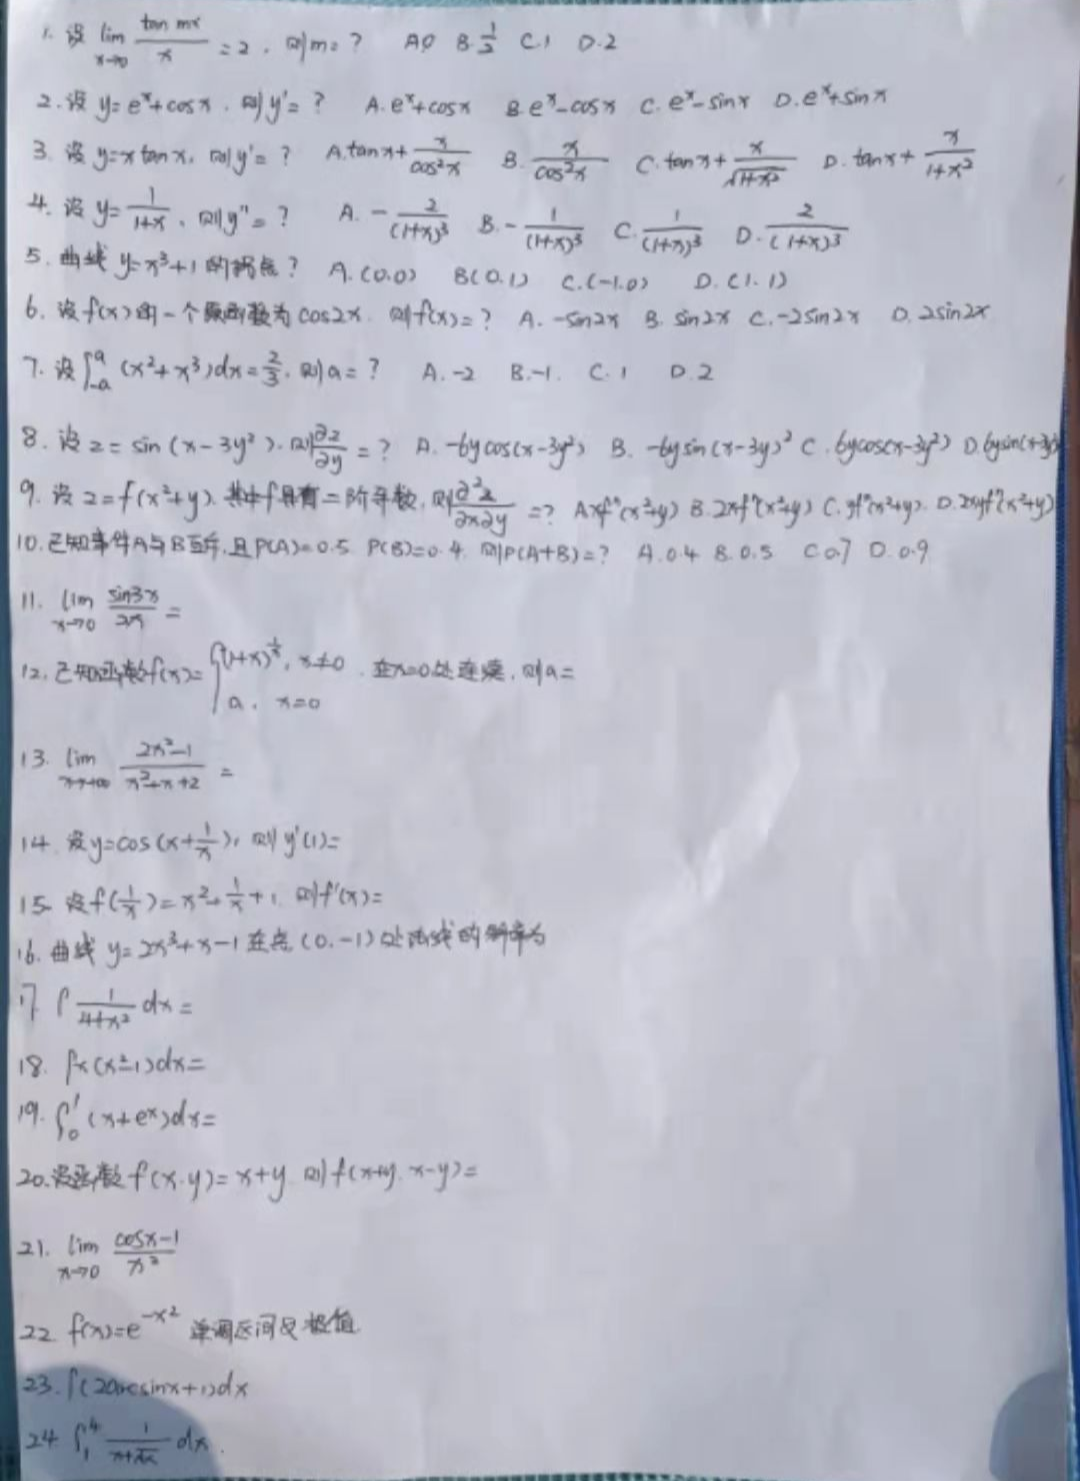 1. 设 lim x→0 tan mx / x = 2, 则m=? A.0 B.1/2 C.1 D.2
2. 设 y=e^x+cosx. 则y'=? A.e^x+cosx B.e^x-cosx C.e^x-sinx D.e^x+sinx
3. 设 y=xtanx, 则y'=? A.tanx+x/cos²x B.x/cos²x C.tanx+x/√(1+x²) D.tanx+x/1+x²
4. 设 y=1/1+x, 则y''=? A.-2/(1+x)³ B.-1/(1+x)³ C.1/(1+x)³ D.2/(1+x)³
5. 曲线 y=x³+1 的拐点? A.(0.0) B(0.1) C.(-1.0) D.(1.1)
6. 设f(x)的一个原函数为cos2x. 则f(x)=? A.-sin2x B.sin2x C.-2sin2x D.2sin2x
7. 设∫_-a^a (x²+x³)dx=2/3, 则a=? A.-2 B.-1. C.1 D.2
8. 设z=sin(x-3y²), 则∂z/∂y=? A.-6ycos(x-3y²) B.-6ysin(x-3y)² C.6ycos(x-3y²) D.6ysin(x-3y
9. 设z=f(x²+y), 其中f具有二阶导数, 则∂²z/∂x∂y=? A.xf''(x²+y) B.2xf''(x²+y) C.yf''(x²+y). D.2xyf''(x²+y)
10. 已知事件A与B互斥, 且P(A)=0.5. P(B)=0.4. 则P(A+B)=? A.0.4 B.0.5 C0.7 D.0.9
11. lim x→0 sin3x/2x =
12. 已知函数f(x)={(1+x)^(1/x), x≠0. 在x=0处连续, 则a=
a, x=0
13. lim x→∞ 2x²-1/x²+x+2 =
14. 设y=cos(x+1/x), 则y'(1)=
15. 设f(1/x)=x²+1/x+1, 则f'(x)=
16. 曲线 y=2x³+x-1在点(0.-1)处法线的斜率为
17. ∫1/4+x² dx=
18. ∫x(x²-1)dx=
19. ∫_0^1 (x+e^x)dx=
20. 设函数f(x.y)=x+y. 则f(x+y. x-y)=
21. lim x→0 cosx-1/x²
22. f(x)=e^-x² 单调区间及极值
23. ∫(2arcsinx+1)dx
24. ∫_1^4 1/x+√x dx.